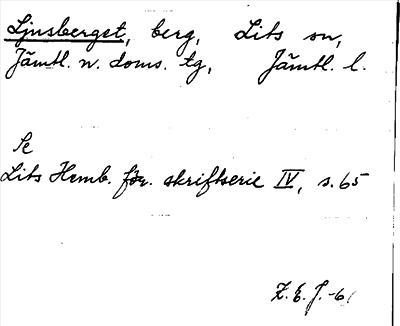 Ljusberget, berg, Lits sn,
Jämtl. n. doms. tg, Jämtl. l.
Se
Lits Hemb. för. skriftserie IV, s. 65
Z. E. J. -61